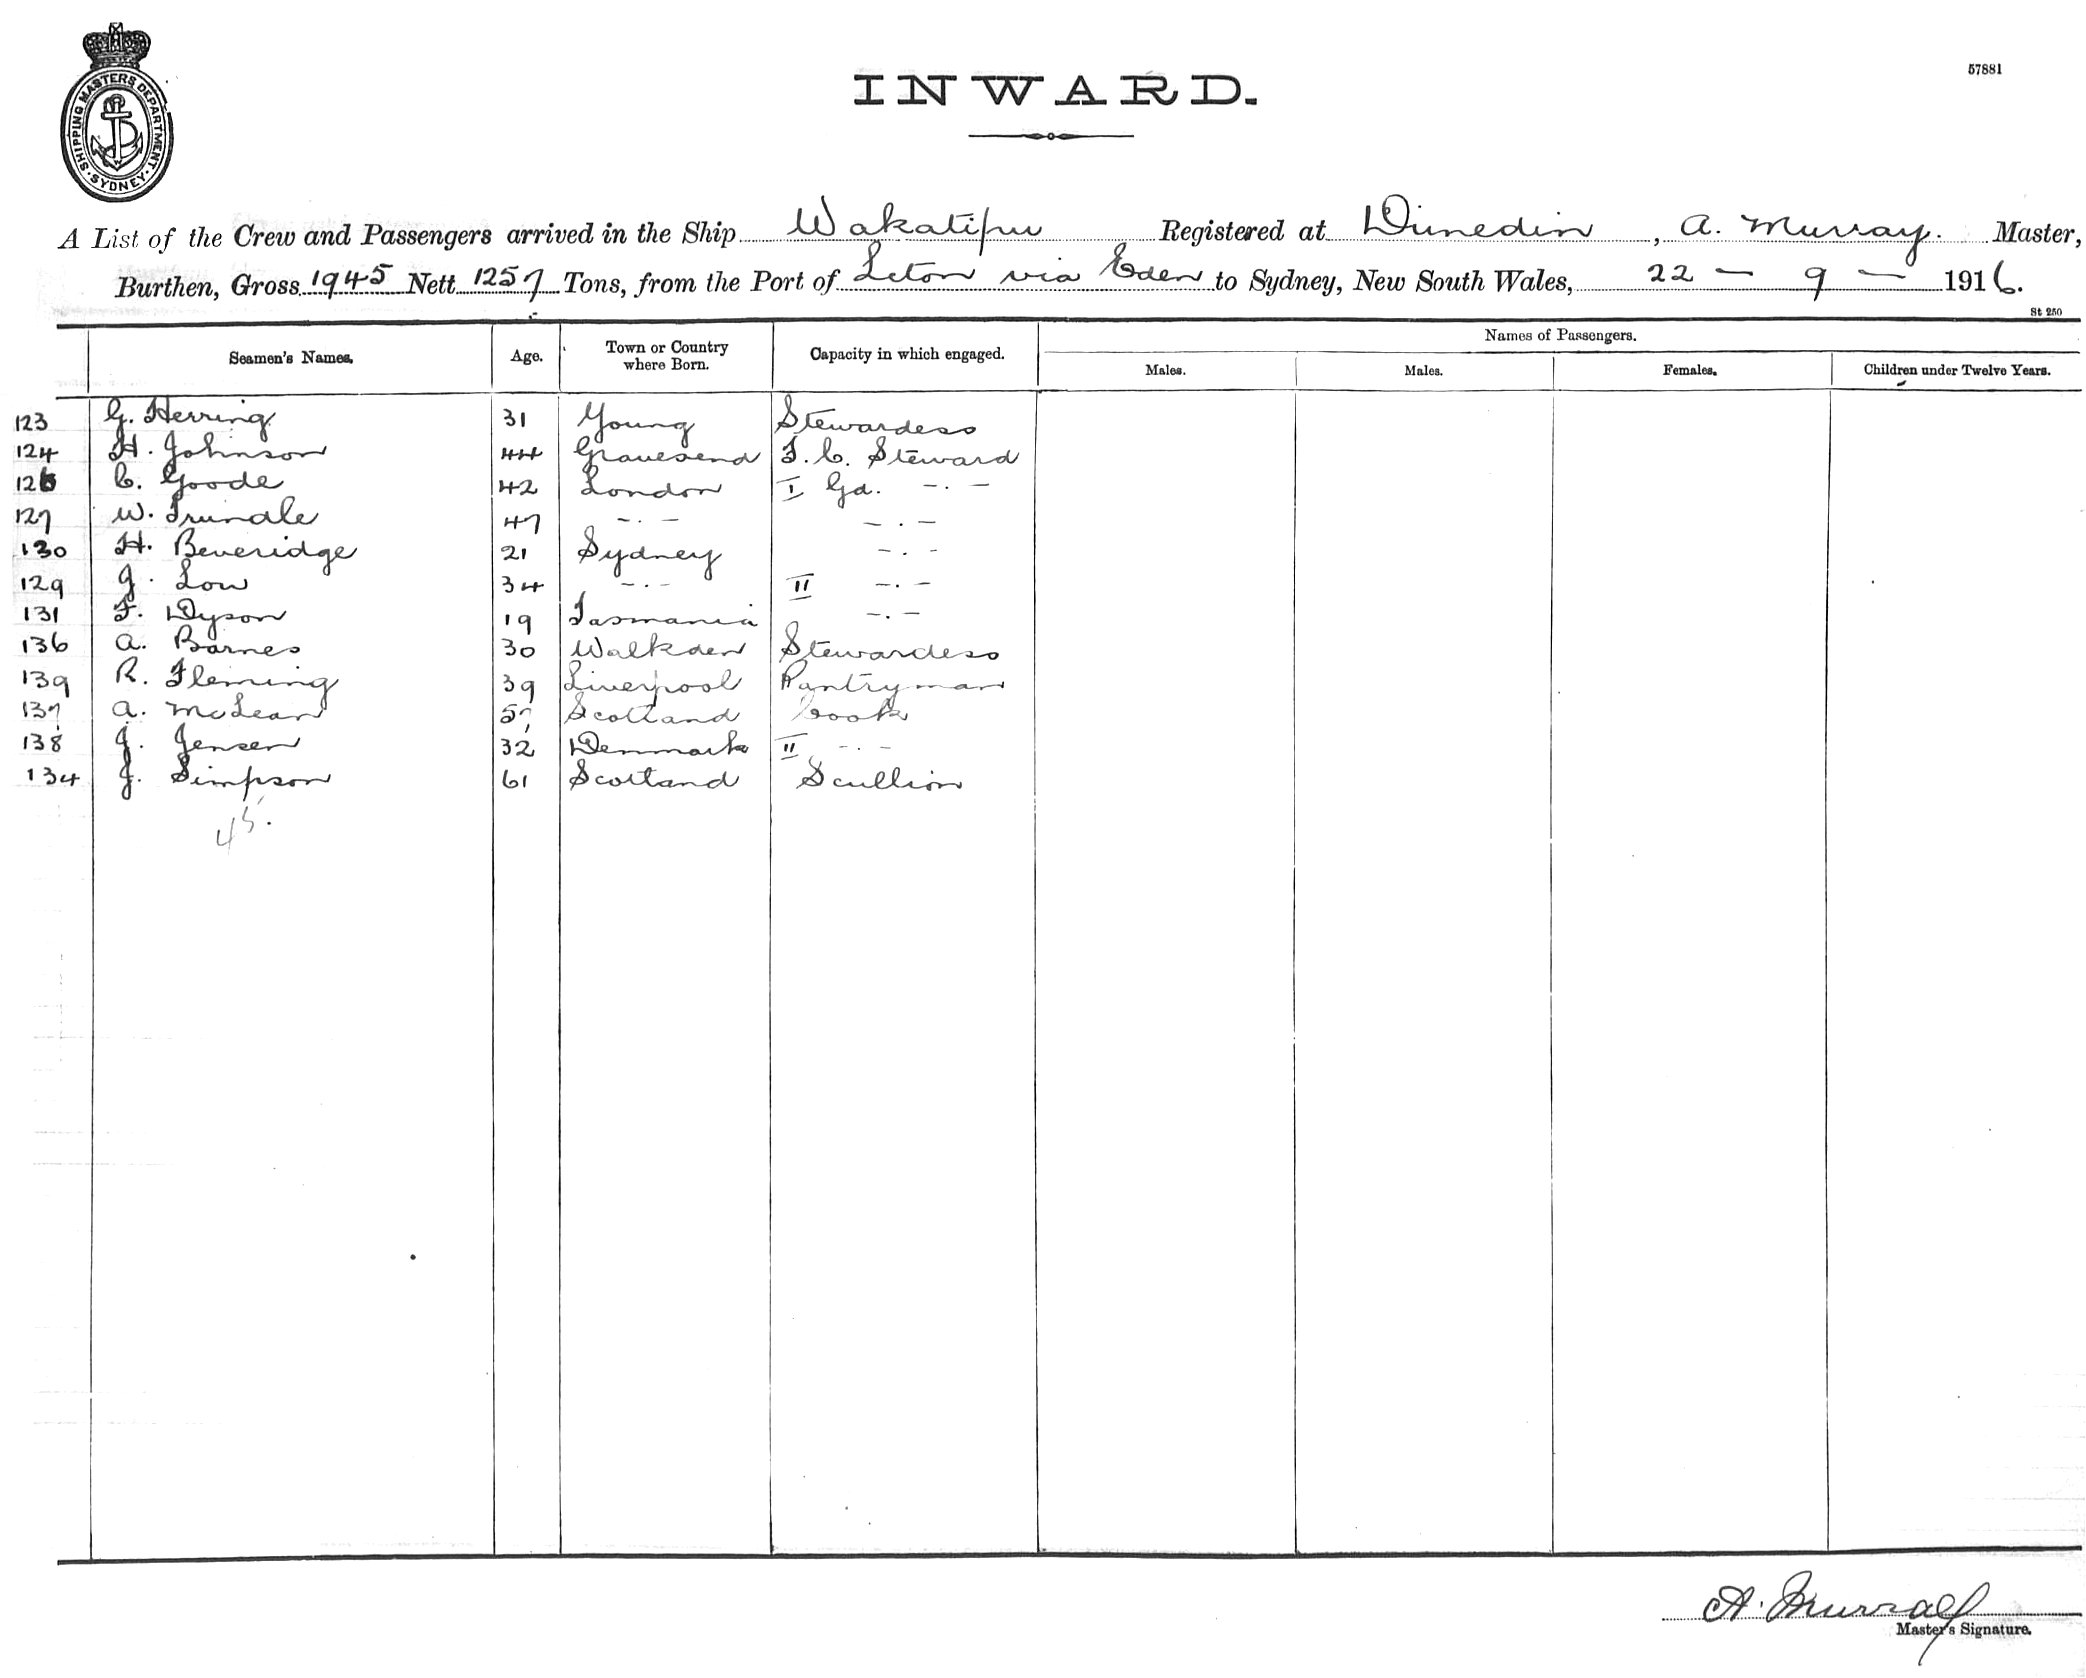 SHIPPING MASTERS DEPARTMENT. SYDNEY.
INWARD.
57881
A List of the Crew and Passengers arrived in the Ship Wakatipu Registered at Dunedin, A. Murray. Master,
Burthen, Gross 1945 Nett 1257 Tons, from the Port of Lton via Eden to Sydney, New South Wales, 22 – 9 – 1916.
St 250
Seamen's Names. Age. Town or Country where Born. Capacity in which engaged. Names of Passengers.
Males. Males. Females. Children under Twelve Years.
123 G. Herring 31 Young Stewardess
124 H. Johnson 44 Gravesend F.C. Steward
126 C. Goode 42 London I Gd. -.-
127 W. Trundle 47 -.- -.-
130 H. Beveridge 21 Sydney -.-
129 J. Low 34 -.- II -.-
131 F. Dyson 19 Tasmania -.-
136 A. Barnes 30 Walkden Stewardess
139 R. Fleming 39 Liverpool Pantryman
137 A. McLean 57 Scotland Cook
138 J. Jensen 32 Denmark II -.-
134 J. Simpson 61 Scotland Scullion
45.
A. Murray
Master's Signature.